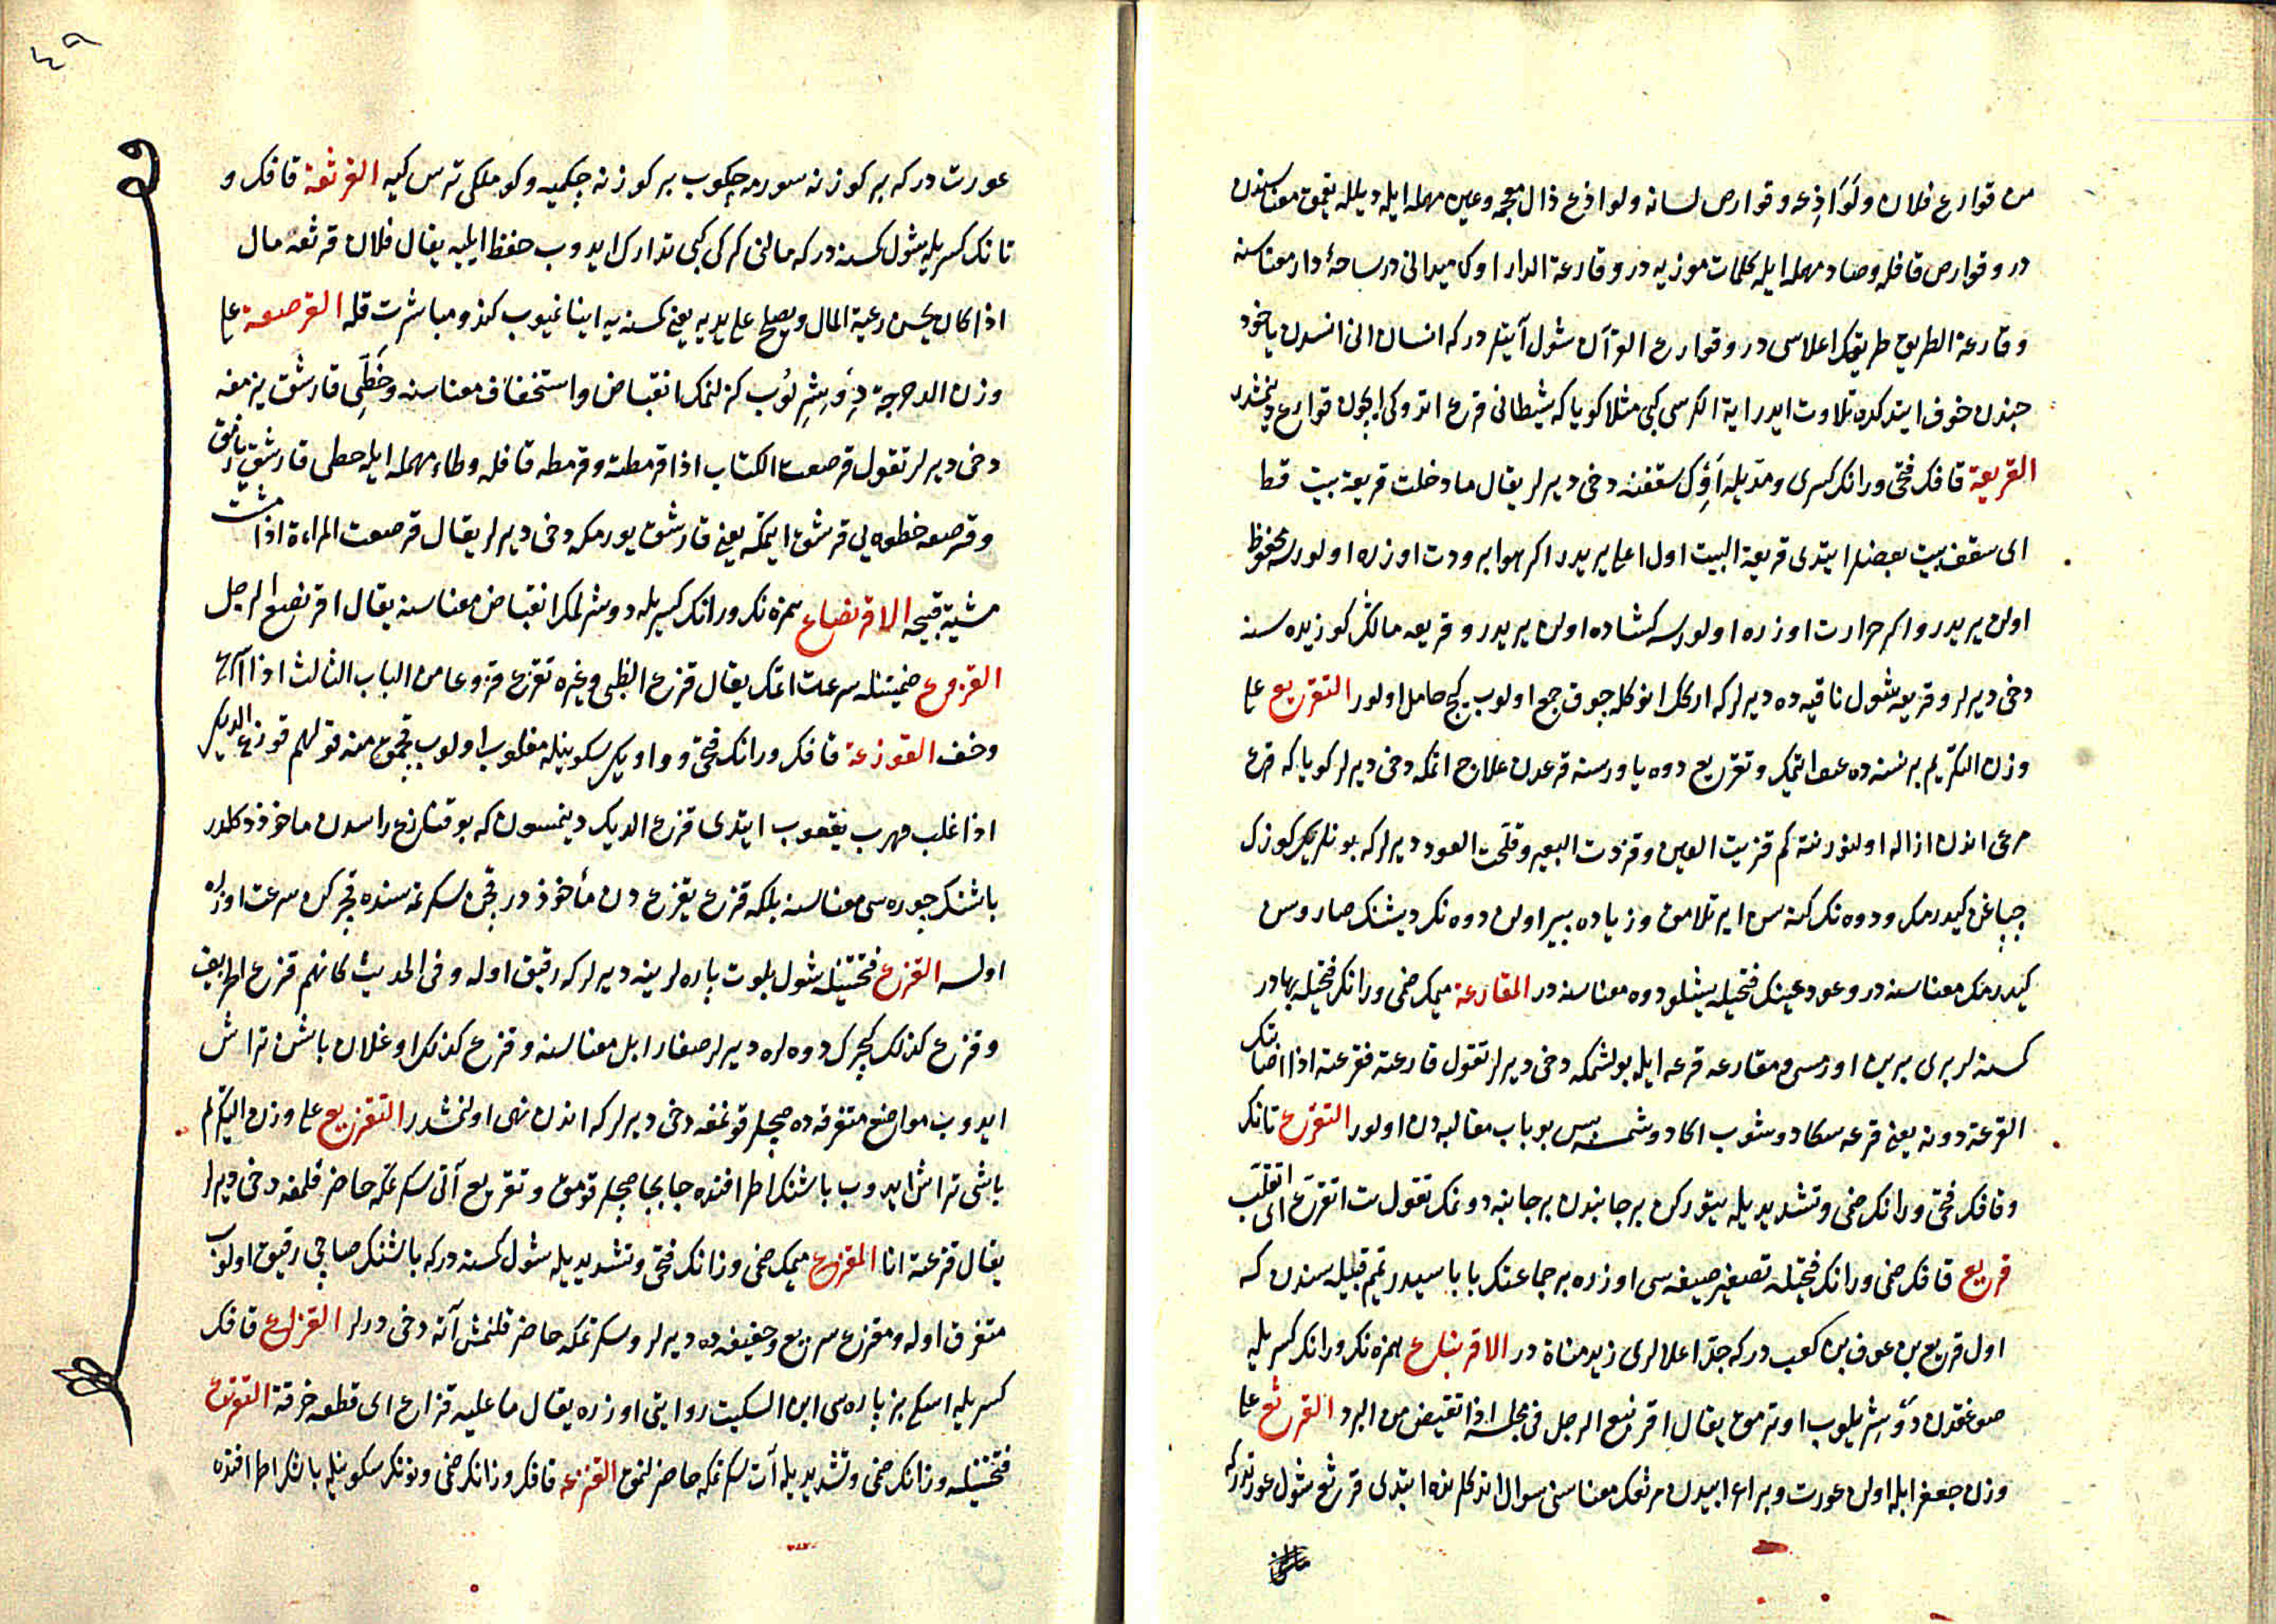 من قوارع فلان ولواذعه وقوارص لسانه ولواذع ذال معجمه وعين مهمله ايله ديلله يقمق معناسندن
در وقوارص قافله وصاد مهمله ايله كلمات موزيه در وقارعة الدار اوك ميدانى در ساحۀ دار معناسنه
وقارعة الطريق طريقك اعلاسى در وقوارع القرآن شول آيتلر در كه انسان انى انسدن ياخود
جندن خوف ايتدكده تلاوت ايدر اية الكرسى كبى مثلا كويا كه شيطانى قرع اتدوكى ايچون قوارع دينمشدر
القريعة قافك فتحى ورانك كسرى ومديله اوك سقفنه دخى ديرلر يقال ما دخلت قريعة بيت قط
اى سقف بيت بعضلر ايتدى قريعة البيت اول اعلا يريدر اكر هوا برودت اوزره اولورسه محفوظ
اولن يريدر واكر حرارت اوزره اولورسه كشاده اولن يريدر وقريعه مالك كوزيده سنه
دخى ديرلر وقريعه شول ناقيه ده ديرلر كه اركك انوكله چوق جمع اولوب كچ حامل اولور التقريع على
وزن التكريم بر نسنه ده عنف ايتمك وتقريع دوه ياورسنه قرعدن علاج اتمكه دخى ديرلر كويا كه قرع
مرعى اندن ازاله اولنور نته كم قزيت العين وقردت البعير وقلحت العود ديرلر كه بونلر كوزك
چپاغن كيدرمك ودوه نك كنه سن ايرتلامق وزياده پير اولن دوه نك ديشنك صاروسن
كيدرمك معناسنه در وعود عينك فتحيله يشلو دوه معناسنه در المقارعة ميمك ضمى ورانك فتحيله بهادر
كسنه لر برى برين اورمسى ومقارعه قرعه ايله بولشمكه دخى ديرلر تقول قارعته فقرعته اذا اصابتك
القرعة دونه يعنى قرعه سكا دوشوب اكا دوشمسه پس بو باب مغالبه دن اولور التقرع تانك
وقافك فتحى ورانك ضمى وتشديديله يتوركن بر جانبدن بر جانبه دونمك تقول بت اتقرع اى اتقلب
قريع قافك ضمى ورانك فتحيله تصغير صيغه سى اوزره بر جماعتك باباسيدر تميم قبيله سندن كه
اول قريع بن عوف بن كعب در كه جد اعلالرى زيد مناة در الاقرنباع همزه نك ورانك كسريله
صوغقدن دوشريلوب اوترمق يقال اقرنبع الرجل فى مجلسه اذا تقبض من البرد القرثع على
وزن جعفر ابله اولن عورت وبر اعرابيدن قرثعك معناسنى سوال اتدكلرنده ايتدى قرثع شول عورتدر كه
٤٩
عورت در كه بر كوزنه سورمه چكوب بر كوزنه چكميه وكوملكى ترس كيه القرثعة قافك و
ثانك كسريله شول كسنه در كه مالنى كركى كبى تدارك ايدوب حفظ ايليه يقال فلان قرثعة مال
اذا كان يحسن رعية المال ويصلح على يديه يعنى كسنه يه اينانميوب كندو مباشرت قله القرصعة على
وزن الدحرجة دوشرلوب كزلنمك انقباض واستخفاف معناسنه وخطى قارشق يزمغه
دخى ديرلر تقول قرصعت الكتاب اذا قرمطته وقرمطه قافله وطاء مهمله ايله خطى قارشق يازمق
وقرصعه خطوه يى قرشق ايتمكه يعنى قارشق يورمكه دخى ديرلر يقال قرصعت المراءة اذا مشت
مشية قبيحه الاقرنصاع همزه نك ورانك كسريله دوشرلمك انقباض معناسنه يقال اقرنصع الرجل
القزوع ضمتينله سرعت اتمك يقال قزع الظبى وغيره تقزع قزوعا من الباب الثالث اذا اسرع
وخف القوزعة قافك ورانك فتحى وواويك سكونيله مغلوب اولوب قچمق منه قولهم قوزع الديك
اذا غلب فهرب يعقوب ايتدى قزع الديك دينمسون كه بو قنازع راسدن ماخوذ دكلدر
باشنك چوره سى معناسنه بلكه قزع يقزع دن مأخوذ در قچن سكرتمه سنده قچركن سرعت اوزره
اولسه القزع فتحتينله شول بلوت پاره لرينه ديرلر كه رقيق اوله وفى الحديث كانهم قزع الخريف
وقزع كذلك كچرك دوه لره ديرلر صغار ابل معناسنه وقزع كذلك اوغلان باشن تراش
ايدوب مواضع متفرقه ده صچلر قونمغه دخى ديرلر كه اندن نهى اولنمشدر التقزيع على وزن التكريم
باشى تراش ايدوب باشنك اطرافنده جابجا صچلر قومق وتقزيع آتى سكرتمكه حاضر قلمغه دخى ديرلر
يقال قزعته انا المقزع ميمك ضمى وزانك فتحى وتشديديله شول كسنه در كه باشنك صاچى رقيق اولوب
متفرق اوله ومقزع سريع وخفيفه ده ديرلر وسكرتمكه حاضر قلنمش آته دخى ديرلر القزاع قافك
كسريله اسكى بز پاره سى ابن السكيت روايتى اوزره يقال ما عليه قزاع اى قطعه خرقة التقزع
فتحتينله وزانك ضمى وتشديديله آت سكرتمكه حاضر لنمق القنزعه قافك وزانك ضمى ونونك سكونيله باشنك اطرافنده